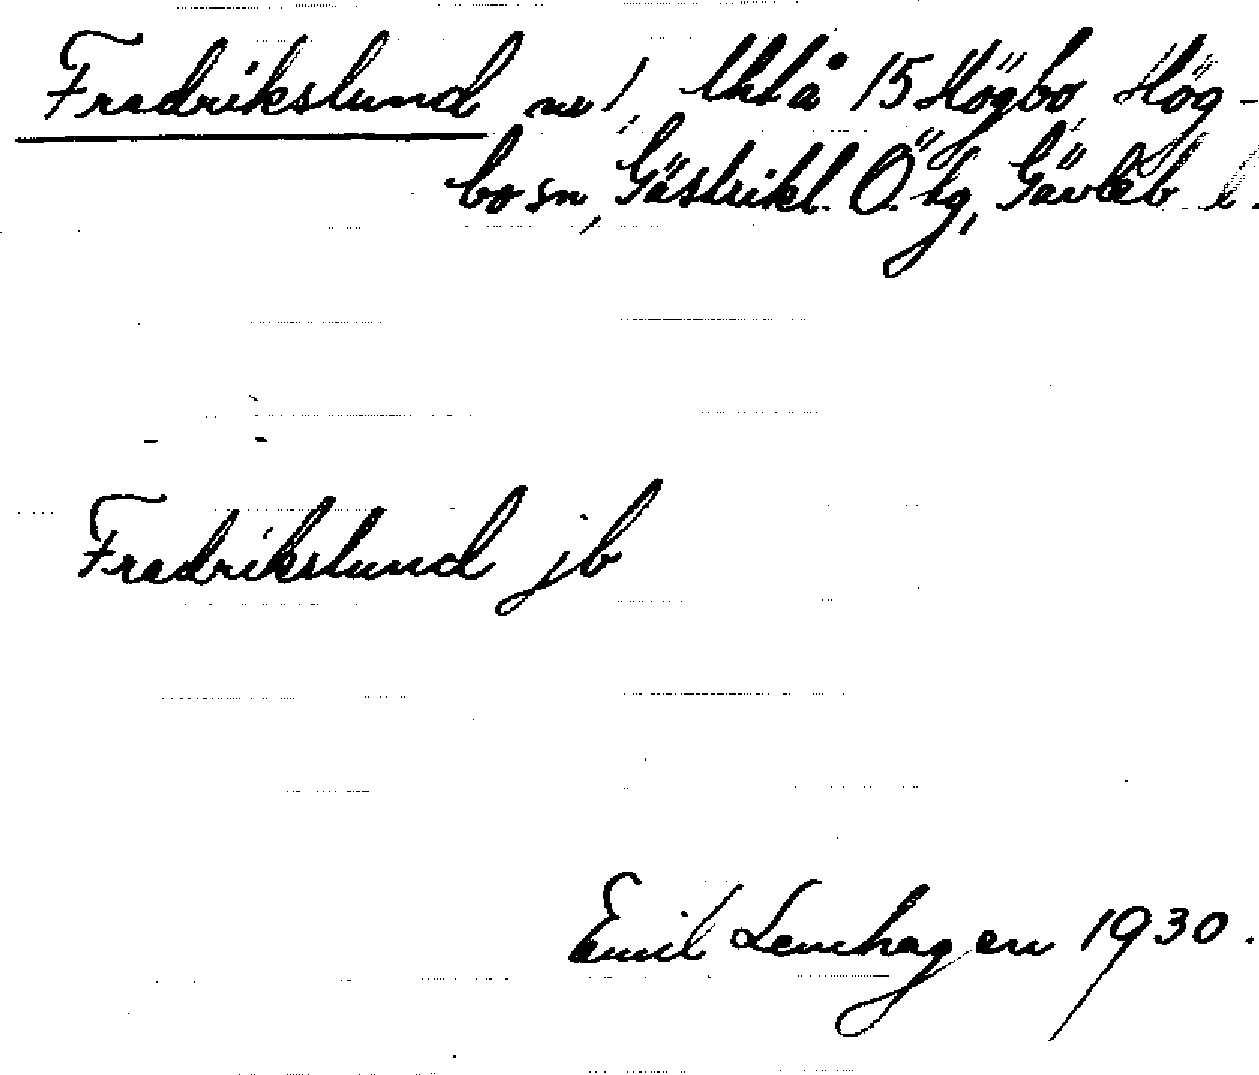 Fredrikslund nr 1, Uhlå 15 Högbo, Hög-
bo sn, Gästrikl. Ö. tg, Gävleb l.
Fredrikslund jb
Emil Lenhagen 1930.